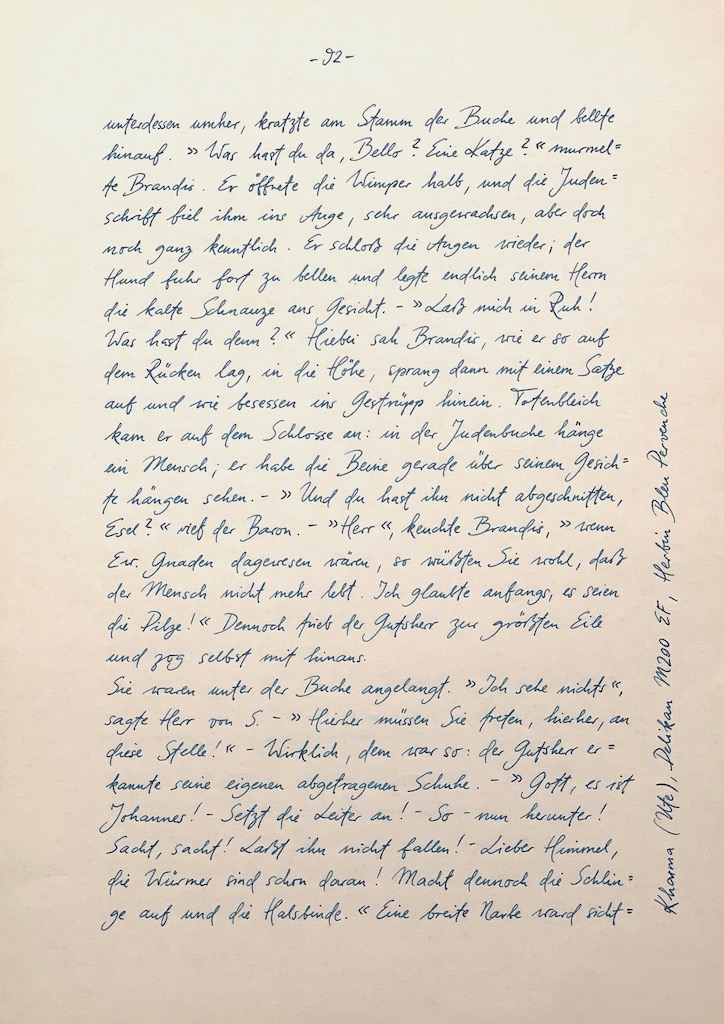 - 92 -
unterdessen umher, kratzte am Stamm der Buche und bellte
hinauf. » Was hast du da, Bello? Eine Katze? « murmel=
te Brandis. Er öffnete die Wimper halb, und die Juden=
schrift fiel ihm ins Auge, sehr ausgewachsen, aber doch
noch ganz kenntlich. Er schloß die Augen wieder; der
Hund fuhr fort zu bellen und legte endlich seinem Herrn
die kalte Schnauze ans Gesicht. - » Laß mich in Ruh!
Was hast du denn? « Hiebei sah Brandis, wie er so auf
dem Rücken lag, in die Höhe, sprang dann mit einem Satze
auf und wie besessen ins Gestrüpp hinein. Totenbleich
kam er auf dem Schlosse an: in der Judenbuche hänge
ein Mensch; er habe die Beine gerade über seinem Gesich=
te hängen sehen. - » Und du hast ihn nicht abgeschnitten,
Esel? « rief der Baron. - » Herr «, keuchte Brandis, » wenn
Ew. Gnaden dagewesen wären, so wüßten Sie wohl, daß
der Mensch nicht mehr lebt. Ich glaubte anfangs, es seien
die Pilze! « Dennoch trieb der Gutsherr zur größten Eile
und zog selbst mit hinaus.
Sie waren unter der Buche angelangt. » Ich sehe nichts «,
sagte Herr von S. - » Hierher müssen Sie treten, hierher, an
diese Stelle! « - Wirklich, dem war so: der Gutsherr er=
kannte seine eigenen abgetragenen Schuhe. - » Gott, es ist
Johannes! - Setzt die Leiter an! - So - nun herunter!
Sacht, sacht! Laßt ihn nicht fallen! - Lieber Himmel,
die Würmer sind schon daran! Macht dennoch die Schlin=
ge auf und die Halsbinde. « Eine breite Narbe ward sicht=
Kharma (Ute), Pelikan M200 EF, Herbin Bleu Pervenche